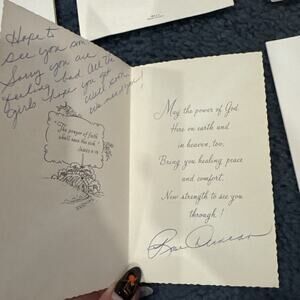 Hope to
see you soon
Sorry you are
feeling bad All the
Girls hope you get
well soon
we need you!
"The prayer of faith
shall save the sick."
James 5:15
May the power of God
Here on earth and
in heaven, too,
Bring you healing, peace
and comfort,
New strength to see you
through!